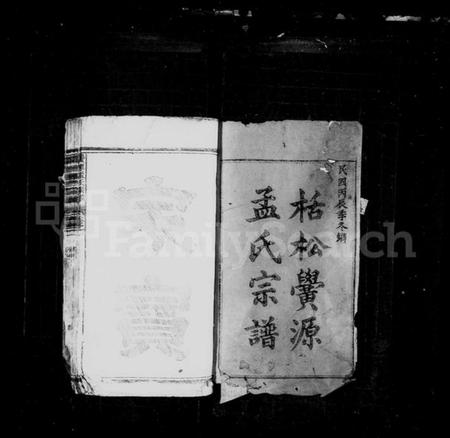 民国丙辰季冬辑
栝松黉源
孟氏宗譜
FamilySearch